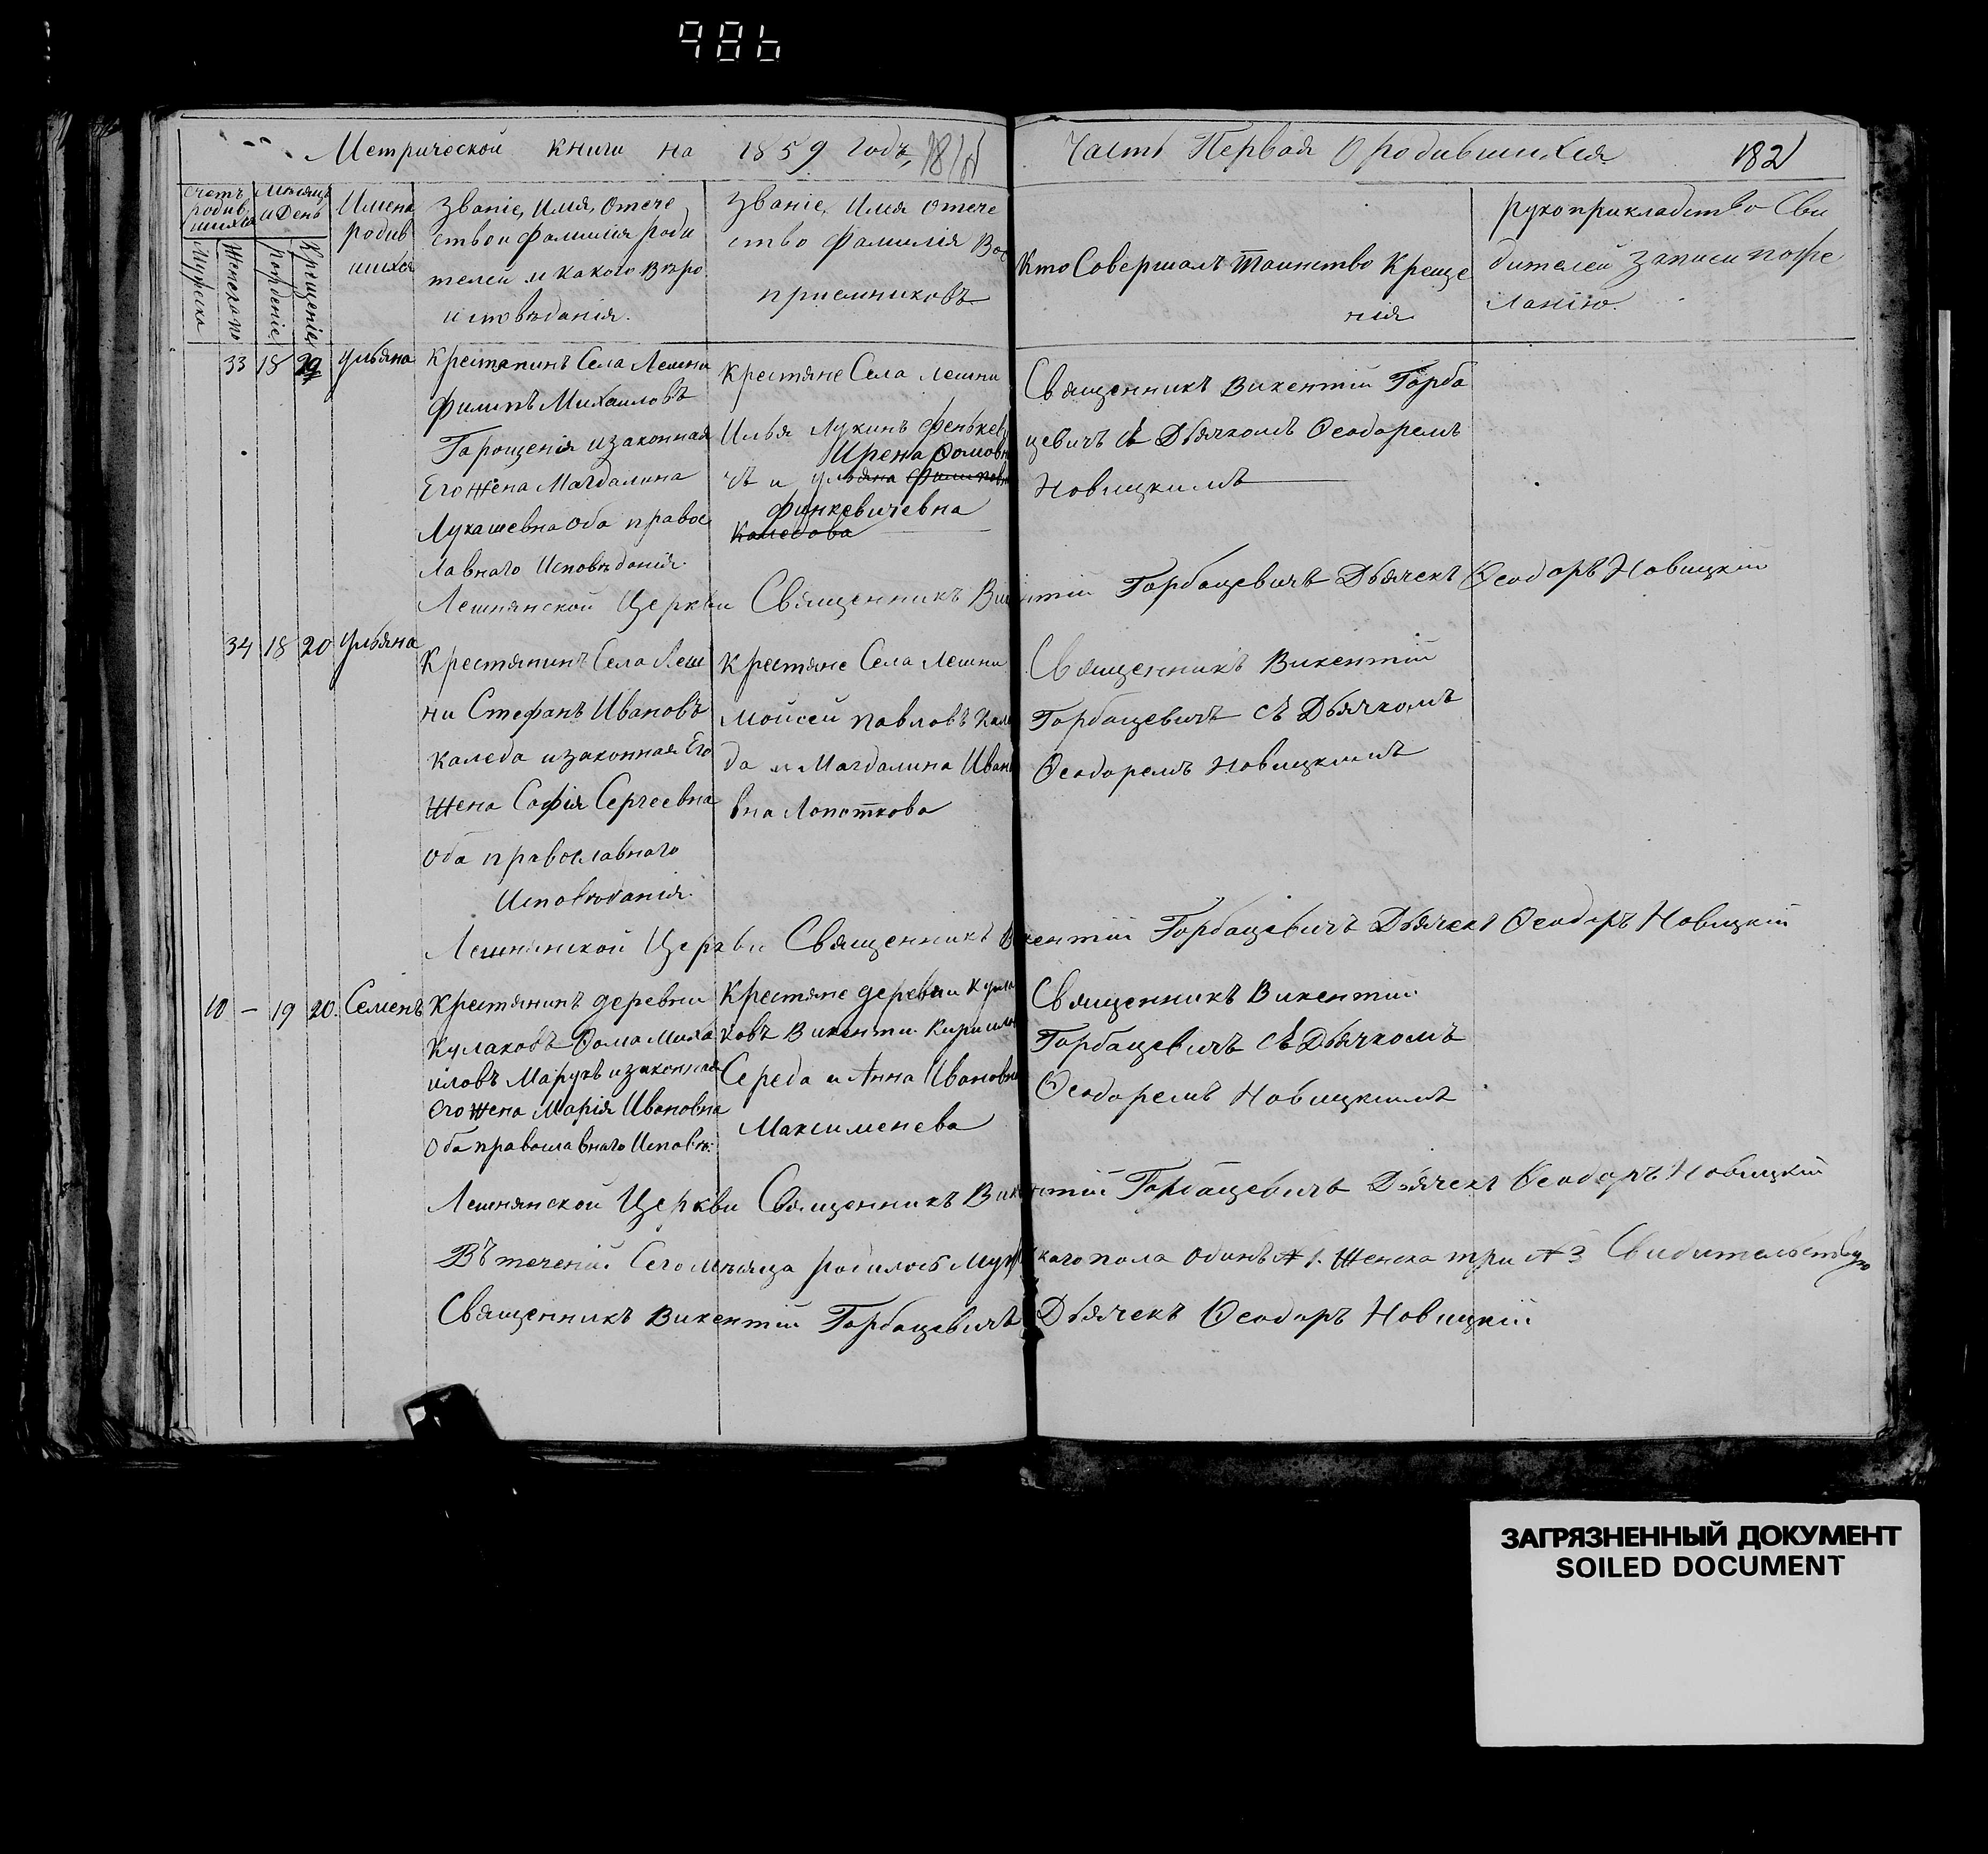 986
Метрической книги на 1859 годъ,
Часть Первая О родившихся
182
Счетъ родившихся
Мужеска
Женскаго
Мѣсяцъ и День
рожденіе
Крещенія
Имена
родив
шихся
Званіе, Имя, Отече
ство и фамилія роди
телей и какого вѣро
исповѣданія.
Званіе, Имя отече
ство фамилія Вос
приемниковъ
Кто Совершалъ Таинство Креще
нія
рукоприкладство Сви
дителей записи поже
ланію.
33 18 Ульяна
Крестянинъ Села Лешни
Филипъ Михаиловъ
Горощеня изаконная
Его жена Магдалина
Лукашевна Оба правос
лавнаго Исповѣданія.
Крестяне Села Лешни
Илья Лукинъ Фенькеви
Ирена Фомовн
чъ и Ульяна Филиповн
Финкевичевна
Каледова
Священникъ Викентій Горба
цевичъ съ Дьячкомъ Ѳеодоремъ
Новицкимъ
Лешнянской Церкви Священникъ Викентій Горбацевичъ Дьячекъ Ѳеодоръ Новицкій
34 18 20 Ульяна
Крестянинъ Села Леш
ни Стефанъ Ивановъ
Каледа изаконная Его
жена Софія Сергеевна
Оба православнаго
Исповѣданія.
Крестяне Села Лешни
Мойсей Павловъ Кале
да и Магдалина Ивано
вна Лопаткова
Священникъ Викентій
Горбацевичъ съ Дьячкомъ
Ѳеодоремъ Новицкимъ
Лешнянской Церкви Священникъ Викентій Горбацевичъ Дьячекъ Ѳеодоръ Новицкій
10 — 19 20. Семенъ
Крестянинъ деревни
Кулаковъ Ѳома Миха
иловъ Маручъ изаконная
Его жена Марія Ивановна
Оба православнаго Исповѣ.
Крестяне деревни Кула
ковъ Викенти Кирилов
Середа и Анна Ивановна
Максименева
Священникъ Викентий
Горбацевичъ съ Дьячкомъ
Ѳеодоремъ Новицкимъ
Лешнянской Церкви Священникъ Викентій Горбацевичъ Дьячекъ Ѳеодоръ Новицкій
Въ течении Сего мѣсяца родилось Мужскаго пола Одинъ № 1. Женска три № 3 Свидительствую
Священникъ Викентій Горбацевичъ Дьячекъ Ѳеодоръ Новицкій
ЗАГРЯЗНЕННЫЙ ДОКУМЕНТ
SOILED DOCUMENT